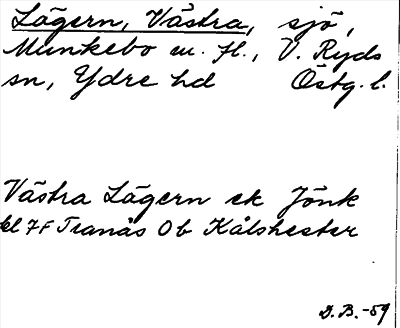 Lägern, Västra, sjö,
Munkebo m. fl., V. Ryds
sn, Ydre hd Östg. l.
Västra Lägern ek Jönk
bl 7F Tranås Ob Kålshester
D.B.-59